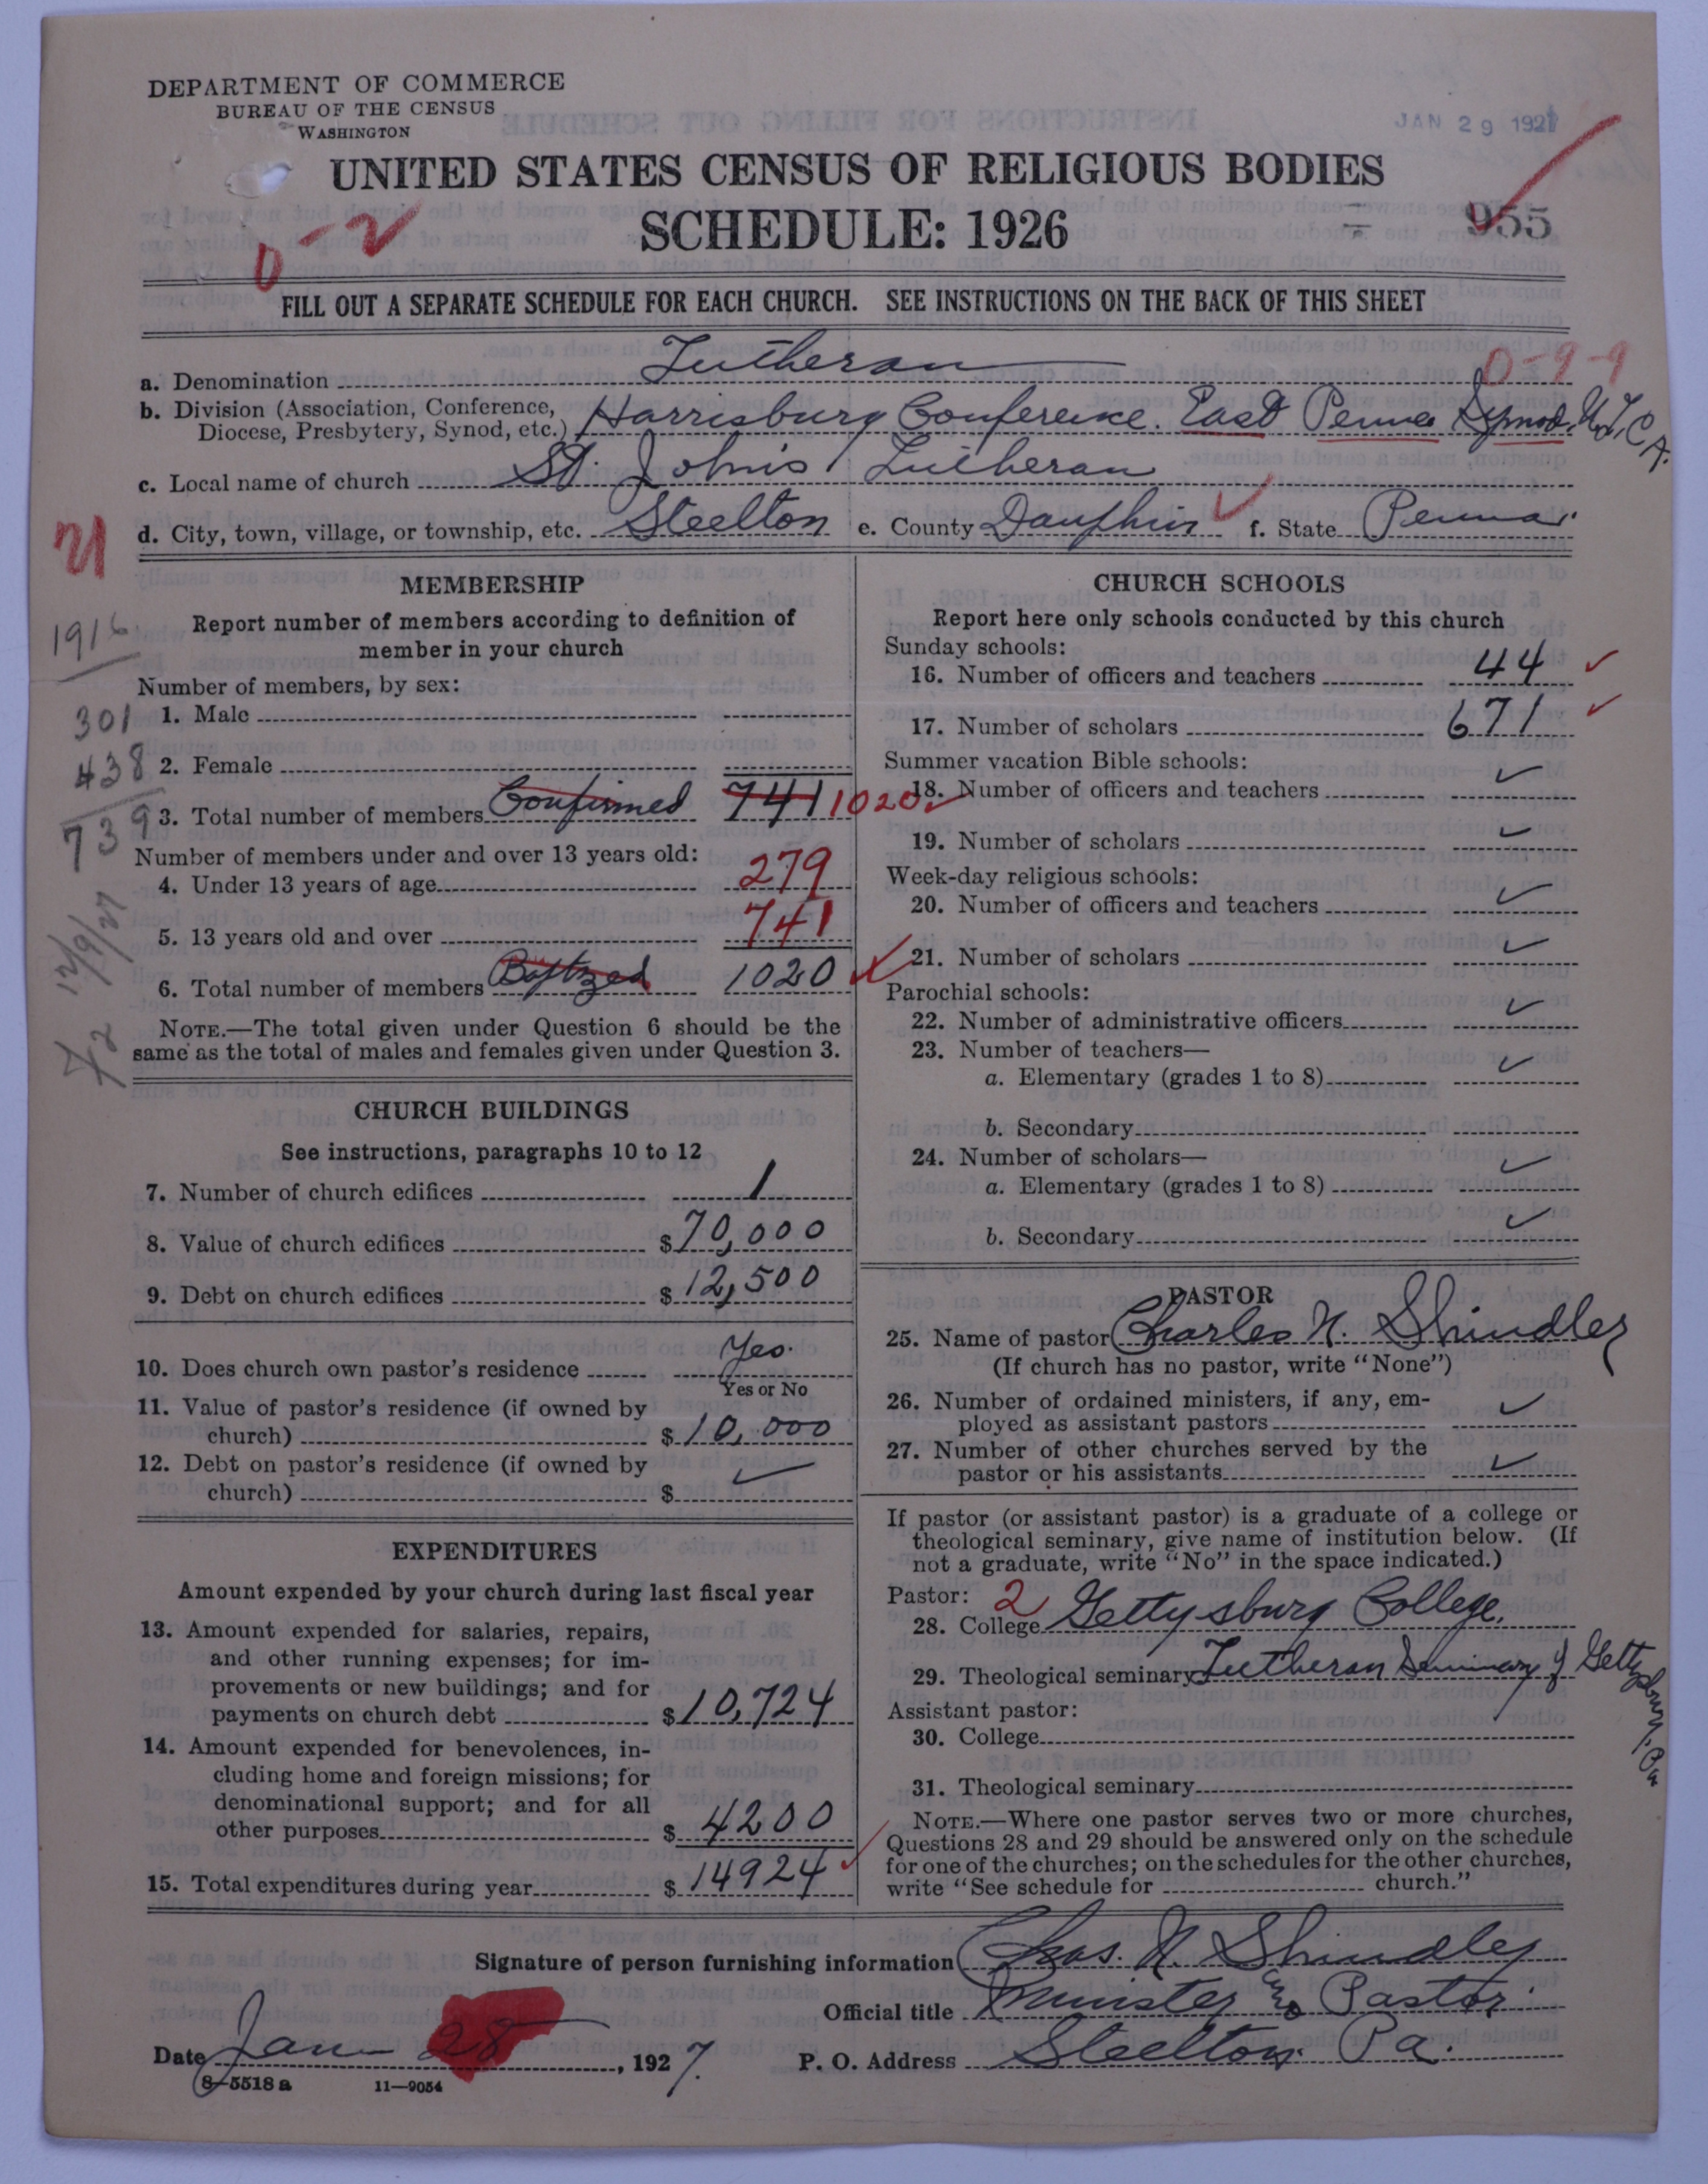 DEPARTMENT OF COMMERCE
BUREAU OF THE CENSUS
WASHINGTON
JAN 29 1927
UNITED STATES CENSUS OF RELIGIOUS BODIES
SCHEDULE: 1926
955
0-2
FILL OUT A SEPARATE SCHEDULE FOR EACH CHURCH. SEE INSTRUCTIONS ON THE BACK OF THIS SHEET
0-9-9
a. Denomination Lutheran
b. Division (Association, Conference, Diocese, Presbytery, Synod, etc.) Harrisburg Conference. East Penna Synod, U.L.C.A.
c. Local name of church St. John's Lutheran
d. City, town, village, or township, etc. Steelton e. County Dauphin f. State Penna.
21
MEMBERSHIP
Report number of members according to definition of
member in your church
1916
Number of members, by sex:
301 1. Male
438 2. Female
739 3. Total number of members Confirmed 741 1020
Number of members under and over 13 years old:
4. Under 13 years of age 279
5. 13 years old and over 741
12/9/27
6. Total number of members Baptized 1020
NOTE.—The total given under Question 6 should be the
same as the total of males and females given under Question 3.
CHURCH BUILDINGS
See instructions, paragraphs 10 to 12
7. Number of church edifices 1
8. Value of church edifices $70,000
9. Debt on church edifices $12,500
10. Does church own pastor's residence Yes.
Yes or No
11. Value of pastor's residence (if owned by
church) $10,000
12. Debt on pastor's residence (if owned by
church) $ ✓
EXPENDITURES
Amount expended by your church during last fiscal year
13. Amount expended for salaries, repairs,
and other running expenses; for im-
provements or new buildings; and for
payments on church debt $10,724
14. Amount expended for benevolences, in-
cluding home and foreign missions; for
denominational support; and for all
other purposes $4200
15. Total expenditures during year $14924
CHURCH SCHOOLS
Report here only schools conducted by this church
Sunday schools:
16. Number of officers and teachers 44 ✓
17. Number of scholars 671 ✓
Summer vacation Bible schools:
18. Number of officers and teachers ✓
19. Number of scholars ✓
Week-day religious schools:
20. Number of officers and teachers ✓
21. Number of scholars ✓
Parochial schools:
22. Number of administrative officers ✓
23. Number of teachers—
a. Elementary (grades 1 to 8) ✓
b. Secondary
24. Number of scholars—
a. Elementary (grades 1 to 8) ✓
b. Secondary ✓
PASTOR
25. Name of pastor Charles N. Shindler
(If church has no pastor, write "None")
26. Number of ordained ministers, if any, em-
ployed as assistant pastors ✓
27. Number of other churches served by the
pastor or his assistants ✓
If pastor (or assistant pastor) is a graduate of a college or
theological seminary, give name of institution below. (If
not a graduate, write "No" in the space indicated.)
Pastor: 2
28. College Gettysburg College.
29. Theological seminary Lutheran Seminary of Gettysburg, Pa
Assistant pastor:
30. College
31. Theological seminary
NOTE.—Where one pastor serves two or more churches,
Questions 28 and 29 should be answered only on the schedule
for one of the churches; on the schedules for the other churches,
write "See schedule for church."
Signature of person furnishing information Chas. N. Shindler
Official title Minister and Pastor
Date Jan 28, 1927. P. O. Address Steelton Pa.
8—5518 a 11—9054